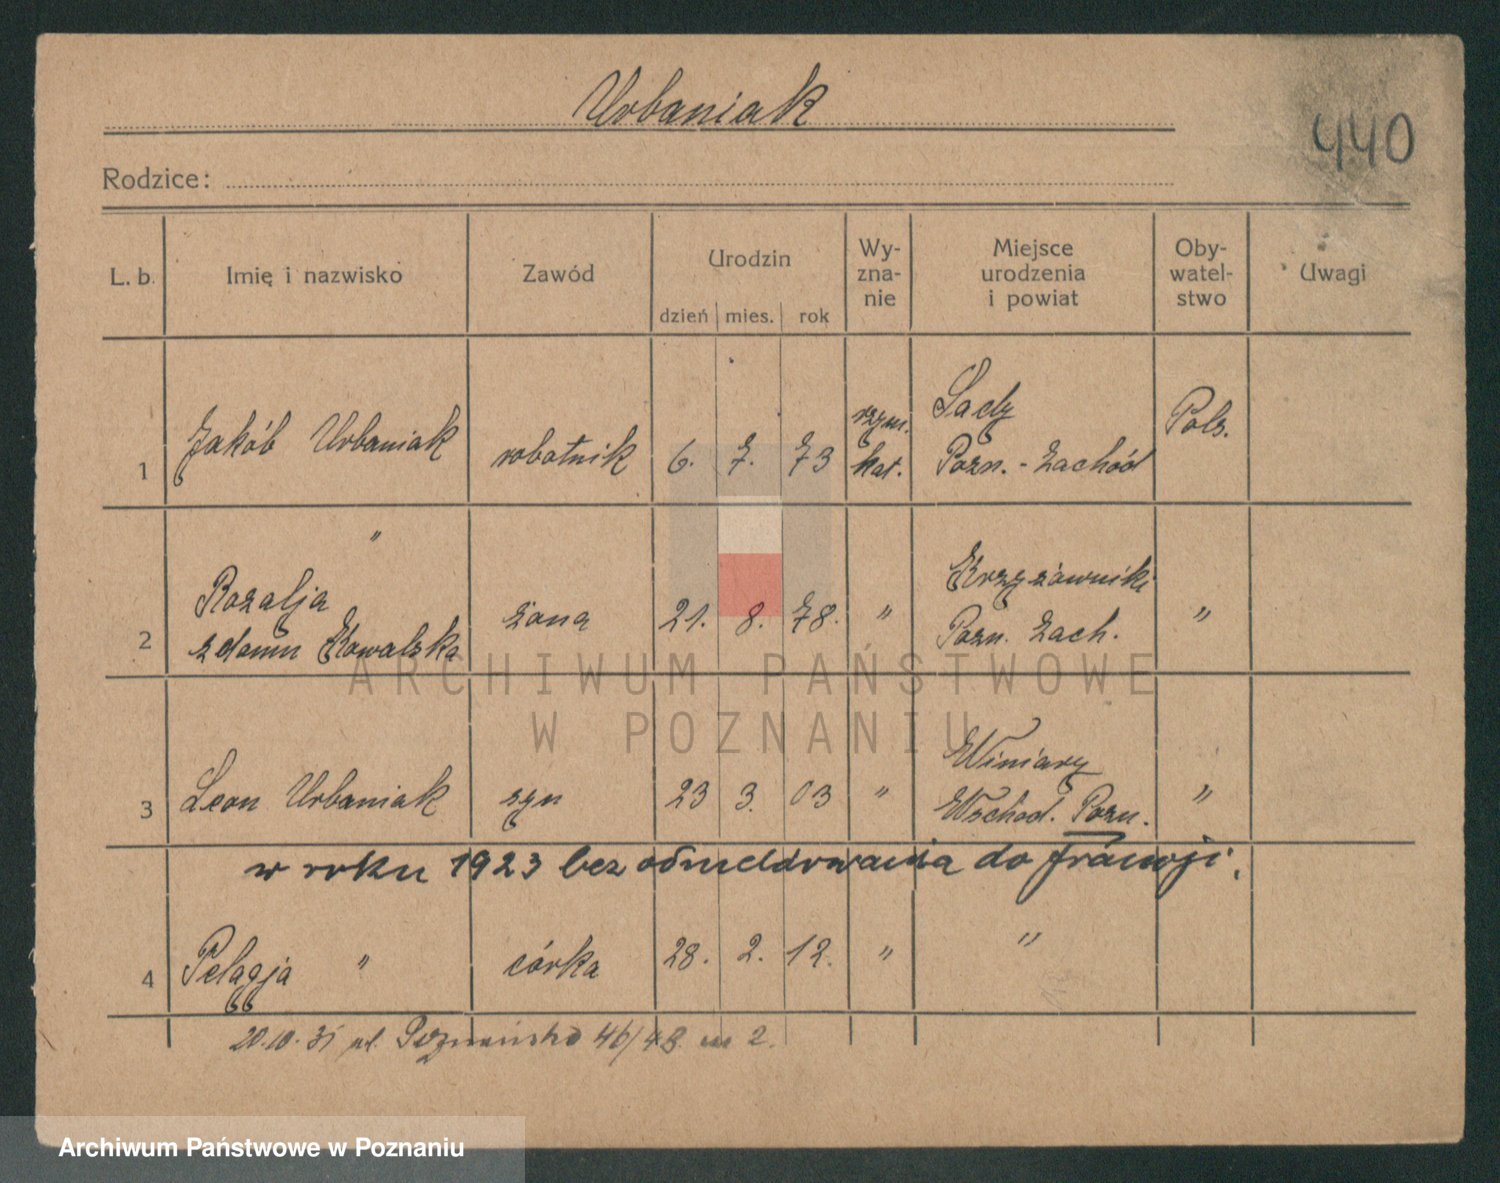 Urbaniak
440
Rodzice:
L. b. Imię i nazwisko Zawód Urodzin dzień mies. rok Wy-zna-nie Miejsce urodzenia i powiat Oby-watel-stwo Uwagi
1 Jakób Urbaniak robotnik 6. 7. 73 rzym. kat. Sady Pozn. - Zachód Pols.
2 Rozalja " zdomu Kowalska żona 21. 8. 78. " Krzyżowniki Pozn. Zach. "
3 Leon Urbaniak syn 23 3. 03 " Winiary Wschod. Pozn. "
w roku 1923 bez odmeldowania do francji.
4 Pelagja " córka 28. 2. 12. " "
20.10.31 ul. Poznańska 46/48 m 2.
ARCHIWUM PAŃSTWOWE
W POZNANIU
Archiwum Państwowe w Poznaniu